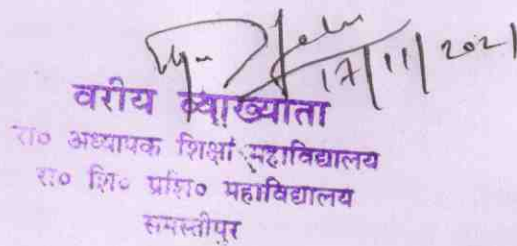 17/11/2021
वरीय व्याख्याता
रा० अध्यापक शिक्षा महाविद्यालय
रा० शि० प्रशि० महाविद्यालय
समस्तीपुर